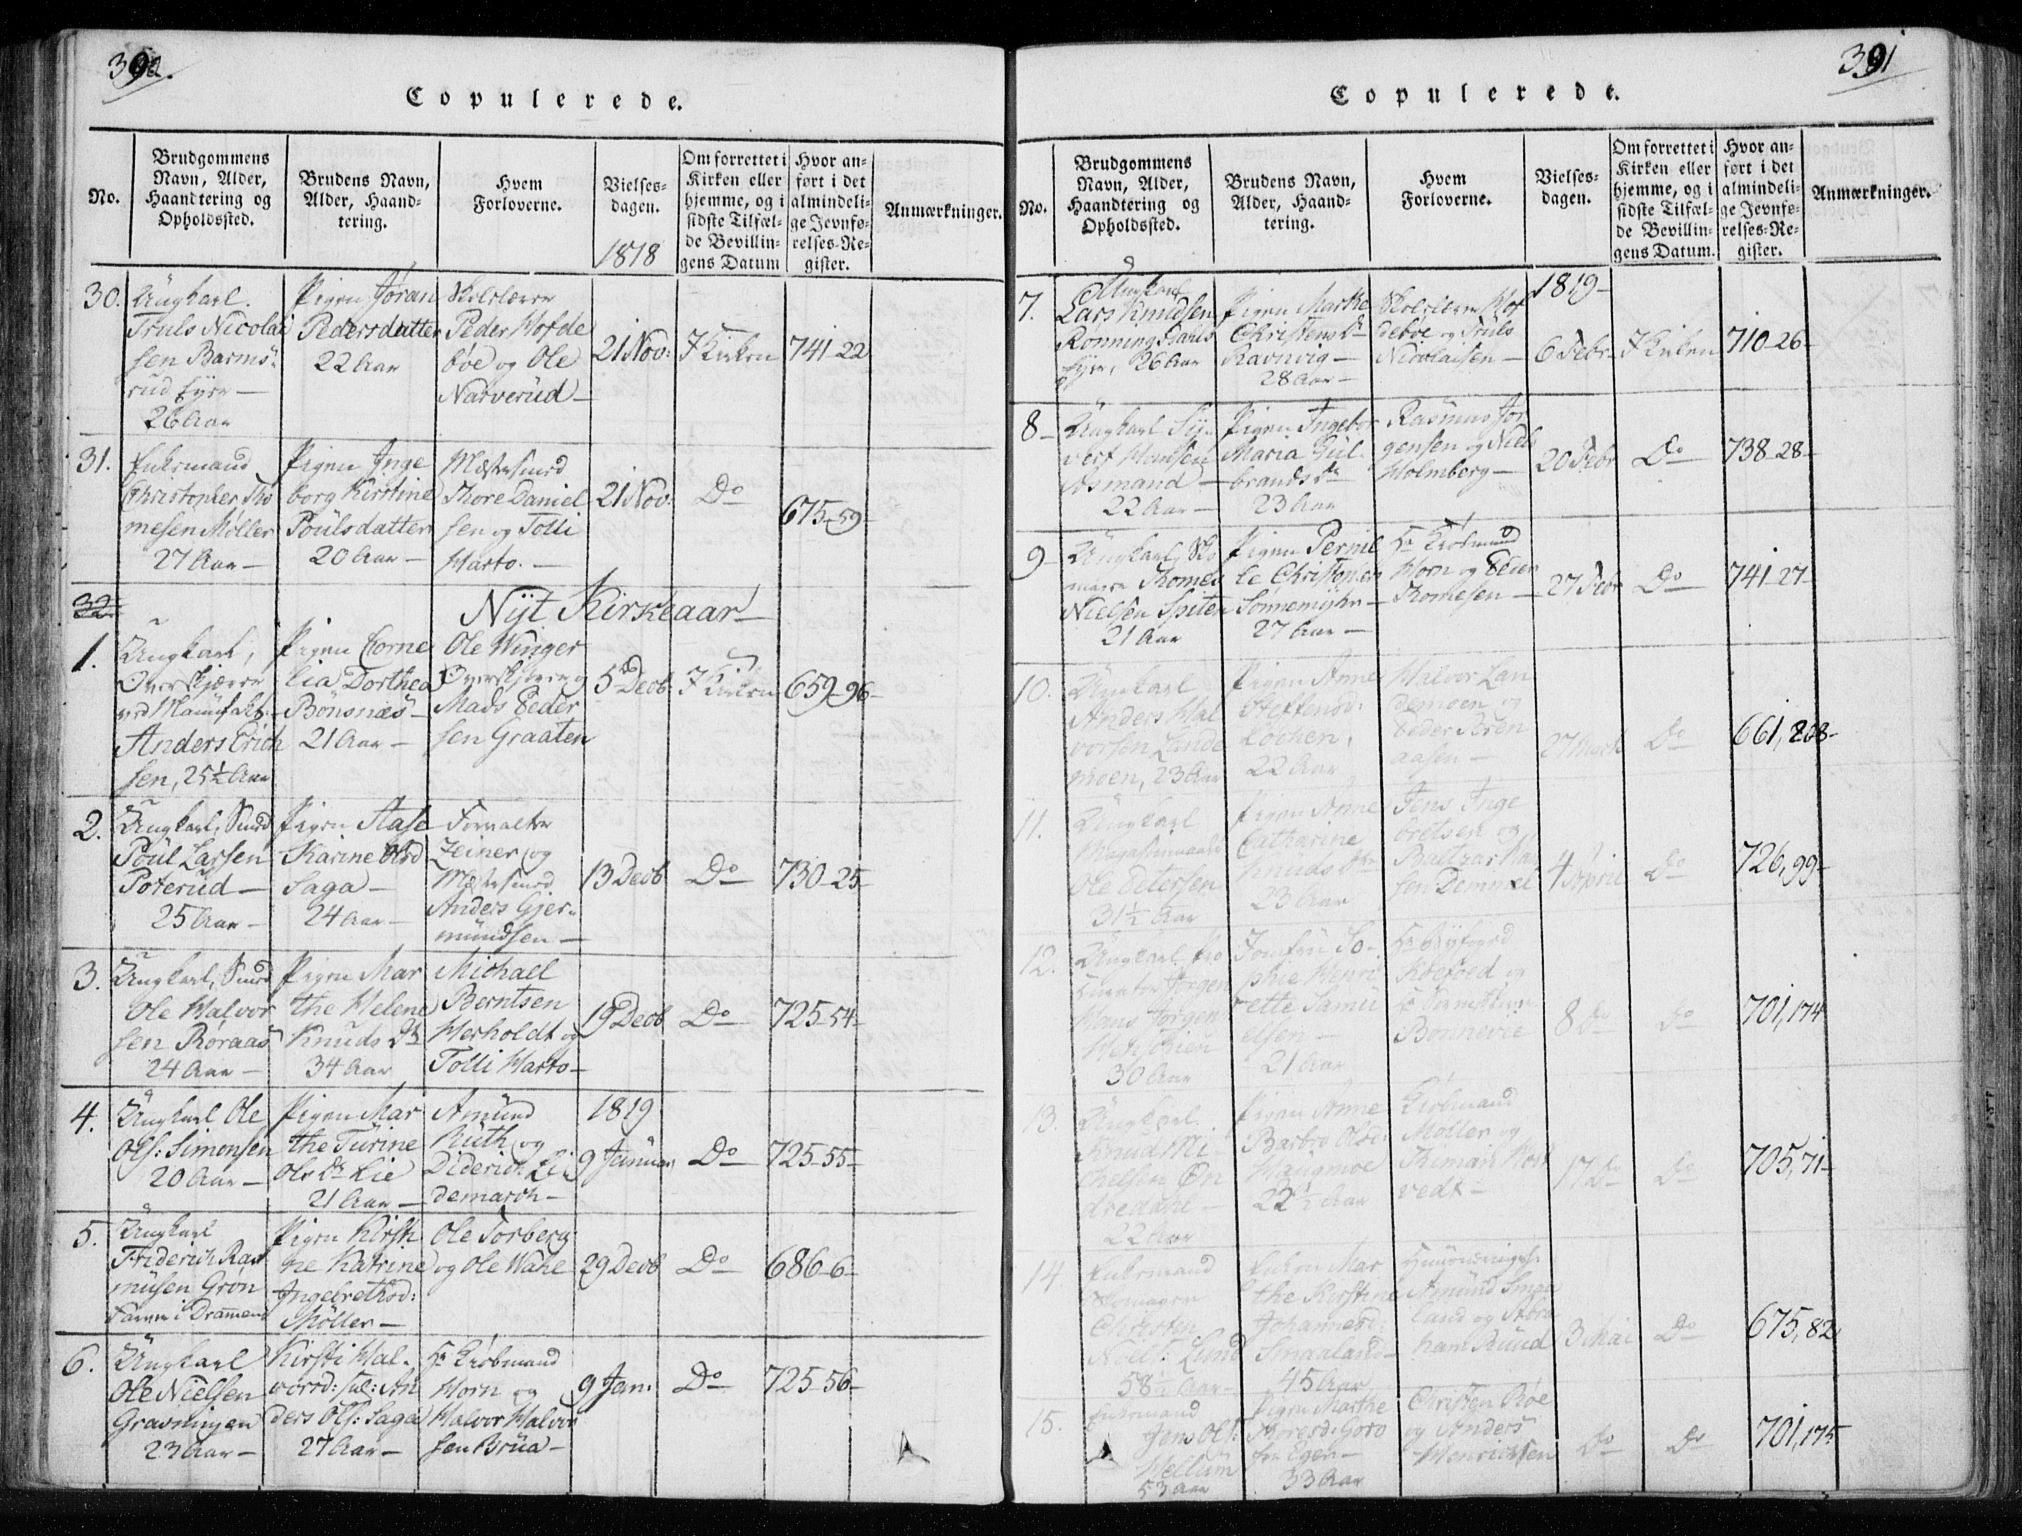 390.
Copulerede.
No.
Brudgommens
Navn, Alder,
Haandtering og
Opholdssted.
Brudens Navn,
Alder, Haand-
tering.
Hvem
Forloverne.
Vielses-
dagen.
1818
Om forrettet i
Kirken eller
hjemme, og i
sidste Tilfæl-
de Bevillin-
gens Datum
Hvor an-
ført i det
almindeli-
ge Jevnfø-
relses-Re-
gister.
Anmærkninger.
30.
Ungkarl.
Truls Nicolai
sen Barms-
rud
26 Aar
Pigen Jøran
Pedersdatter
22 Aar
Skolelærer
Peder Hofde
bøe og Ole
Narverud
21 Nov:
I Kirken
741-22
31.
Enkemand
Christopher Tho
mesen Møller
27 Aar
Pigen Inge
borg Kirstine
Poulsdatter
20 Aar
Mæstersmed
Thore Daniel
sen og Tolli
Harto.
21 Nov:
Do
675-59
32
Nyt Kirkeaar
1.
Ungkarl,
Overskjærer
ved
Anders Erich
sen, 25½ Aar
Pigen Corne
lia Dorthea
Bönsnæs
21 Aar
Ole Winger
Overskjærer og
Mads Peder
sen Graaten
5 Decb:
I Kirken
659-96
2.
Ungkarl, Smed
Poul Larsen
Poterud
25 Aar
Pigen Aase
Karine Olsd
Saga
24 Aar
Forvalter
Zeiner og
Mæstersmed
Anders Gjer-
mundsen
13 Decb
Do
730-25
3.
Ungkarl, Smed
Ole Halvor
sen Roraas
24 Aar
Pigen Mar
the Helene
Knuds Dr
34 Aar
Michael
Berntsen
Herholdt og
Tolli Harto
19 Decb
Do
725-54
4.
Ungkarl Ole
Ols: Simonsen
20 Aar
Pigen Mar
the Turine
Ols Dr Lie
21 Aar
Amund
Ruth og
Diderich Li
demarch
1819
9 Januar
Do
725-55
5.
Ungkarl
Friderich Ras
musen Grøn
Farver i Drammen
Pigen Kirsti
ne Katrine
Ingebrethsd:
Møller
Ole Torberg
og Ole Wahe
29 Decb
Do
686-6
6.
Ungkarl
Ole Nielsen
Gravningen
23 Aar
Kirsti Hal-
vorsd:
ders Ols: Saga
27 Aar
Hr Kiøbmand
Horn og
Halvor Halvor
sen Brua
9 Jan:
Do
725-56
391
Copulerede.
No.
Brudgommens
Navn, Alder,
Haandtering og
Opholdssted.
Brudens Navn,
Alder, Haand-
tering.
Hvem
Forloverne.
Vielses-
dagen.
Om forrettet i
Kirken eller
hjemme, og i
sidste Tilfæl-
de Bevillin-
gens Datum.
Hvor an-
ført i det
almindeli-
ge Jevnfø-
relses-Re-
gister.
Anmærkninger.
7.
Ungkarl
Lars Knudsen
Ronning
26 Aar
Pigen Marthe
Christens Dr
Ravnvig
28 Aar
Skolelærer Hof
deboe og Truls
Nicolaisen
1819
6 Febr
I Kirken
710-26
8
Ungkarl Sy-
vert Hansen
Aasmand
22 Aar
Pigen Ingebor
Maria Gul-
brands Dr
23 Aar
Rasmus Jør
gensen og Niels
Holmberg
20 Febr
Do
738-28
9
Ungkarl, Sko
mager Thomas
Nielsen Spiten
21 Aar
Pigen Pernil
le Christensen
Sønnemyhr
27 Aar
Hr Kiøbmand
Horn og Peder
Thomesen
27 Febr
Do
741-27
10.
Ungkarl
Anders Hal
vorsen Lande
moen, 23 Aar
Pigen Anne
Steffensd:
Lochen,
22 Aar
Halvor Lan
demoen og
Peder Bren
aasen
27 Mart
Do
661,208
11.
Ungkarl
Ole Petersen
31½ Aar
Pigen Anne
Catharine
Knuds Dr
23 Aar
Jens Inge
bretsen og
Baltzar Han
sen Demmel
4 April
Do
726,99
12.
Ungkarl, Pro
curator Jørgen
Hans Jørgen
30 Aar
Jomfru So-
phie Henri
ette Samu
elsen
21 Aar
Hr Byfoged
Koefoed og
Bonnevie
8 Do
Do
701,174
13.
Ungkarl
Knud Mi-
chelsen On
dredahl
22 Aar
Pigen Anne
Barbro Olsd:
Haugmoe
22½ Aar
Kiøbmand
Møller og
vedt
17 Do
Do
705,71
14.
Enkemand
Skomager
Christen
Niels: Lund
58½ Aar
Enken Mar
the Kirstine
Johannesd:
Smaaland
45 Aar
Amund Smaa
land og Abra
ham Ruud
3 Mai
Do
675,82
15.
Enkemand
Jens Ols:
Hellum
53 Aar
Pigen Marthe
Thoresd: Goro
fra Eger
33 Aar
Christen Roe
og Anders
Henrichsen
Do
Do
701,175